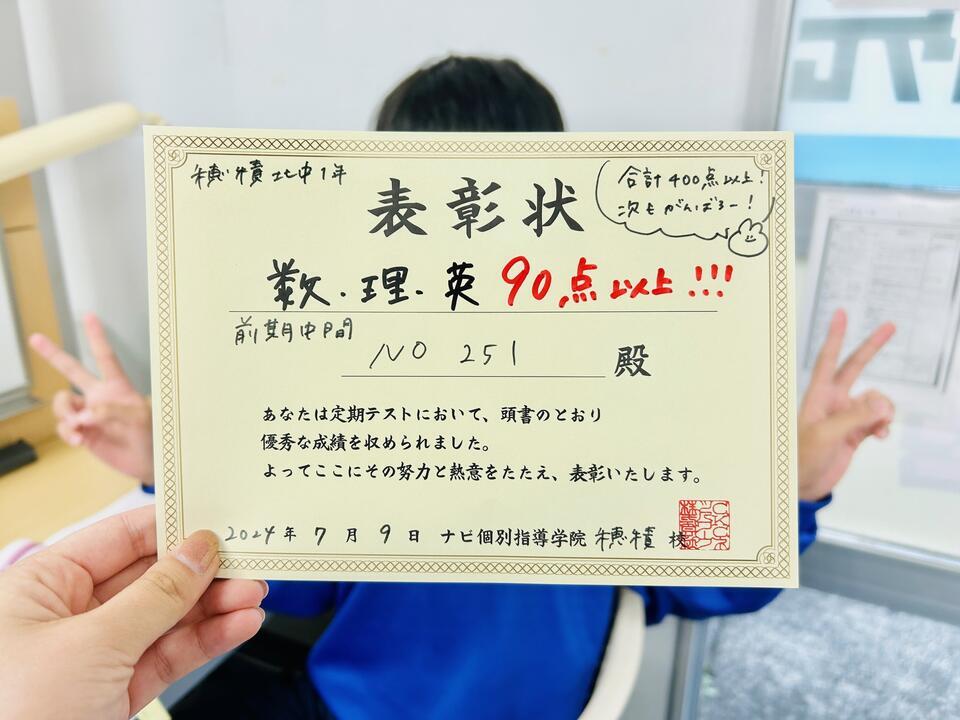 穂積北中1年
表彰状
合計400点以上!
次もがんばろー!
数・理・英 90点以上!!!
前期中間
NO 251 殿
あなたは定期テストにおいて、頭書のとおり
優秀な成績を収められました。
よってここにその努力と熱意をたたえ、表彰いたします。
2024年 7月 9日 ナビ個別指導学院 穂積 校